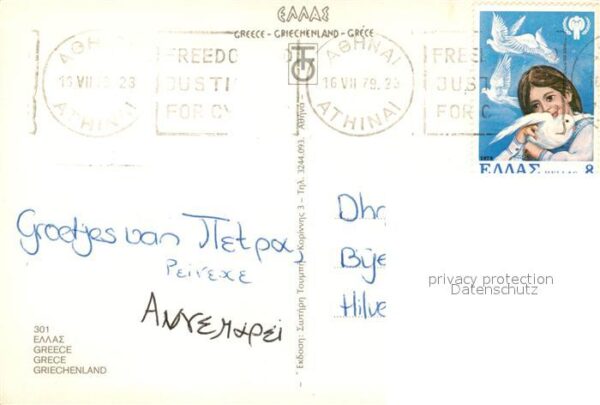 ΕΛΛΑΣ
GREECE - GRIECHENLAND - GRÈCE
ΑΘΗΝΑΙ
16 VII 79. 23
ATHINAI
FREEDO
JUSTI
FOR CY
ΑΘΗΝΑΙ
16 VII 79. 23
ATHINAI
FREE
JUST
FOR C
1979
ΕΛΛΑΣ HELLAS 8
Groetjes van Πετρα,
Ρεινεκε
Αννεμαρει
Έκδοση: Σωτήρη Τουμπή - Κορίννης 3 - Τηλ. 3244.093. Αθήνα
Dhr
Bije
Hilve
privacy protection
Datenschutz
301
ΕΛΛΑΣ
GREECE
GRECE
GRIECHENLAND